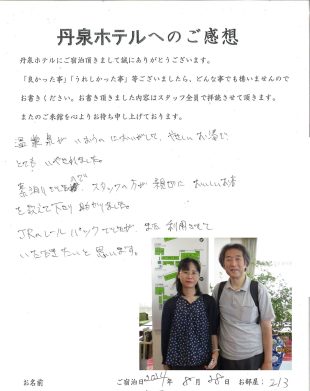 丹泉ホテルへのご感想
丹泉ホテルにご宿泊頂きまして誠にありがとうございます。
「良かった事」「うれしかった事」等ございましたら、どんな事でも構いませんので
お書きください。お書き頂きました内容はスタッフ全員で拝読させて頂きます。
またのご来館を心よりお待ち申し上げております。
温泉が いおうの においがして、優しい お湯で
とても いやされました。
素泊り スタッフの方が 親切に おいしいお店
を教えて下さり 助かりました。
JRのレール パックでしたが、また 利用させて
いただきたいと 思います。
お名前 ご宿泊日 2024年 8月 28日 お部屋: 213